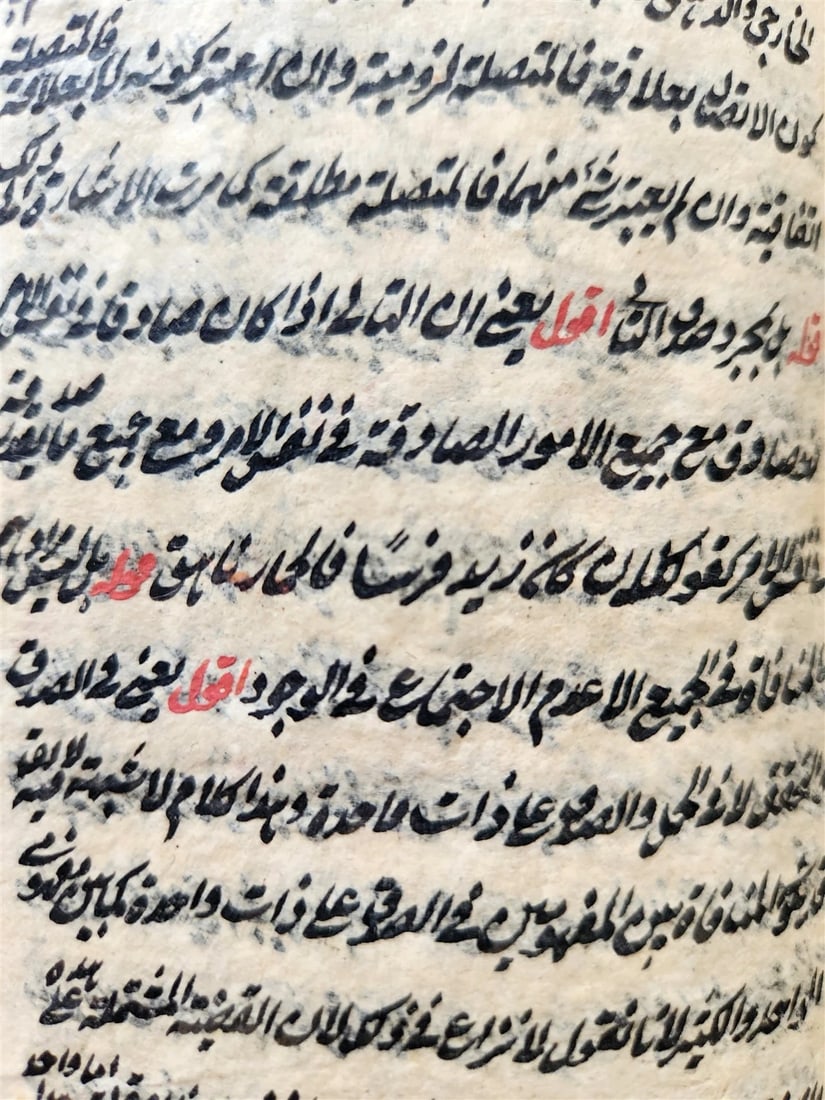 الخارجي والذهني
كون الاتصال بعلاقة فالمتصلة لزومية وان اعتبر كونه لا بعلاقة فالمتصلة
اتفاقية وان لم يعتبر شئ منهما فالمتصلة مطلقة كما مرت الاشارة الى ذلك
قوله بل بمجرد صدق التالي اقول يعني ان التالي اذا كان صادقا في نفس الامر
فهو صادق مع جميع الامور الصادقة في نفس الامر ومع جميع ما يفرض صدقه
في نفس الامر كقولك كلما ان كان زيد فرسا فالحمار ناهق قوله بل ليس مرادهم
بالمنافاة في الجميع الا عدم الاجتماع في الوجود اقول يعني في الصدق
والتحقق لا في الحمل والصدق على ذات واحدة وهذا كلام لا شبهة فيه لا يقال
المنافاة بين المفهومين في الصدق على ذات واحدة كما بين مفهومي
الواحد والكثير لانا نقول لا نزاع في ذلك لان القضية المشتملة على هذه
اما واحد